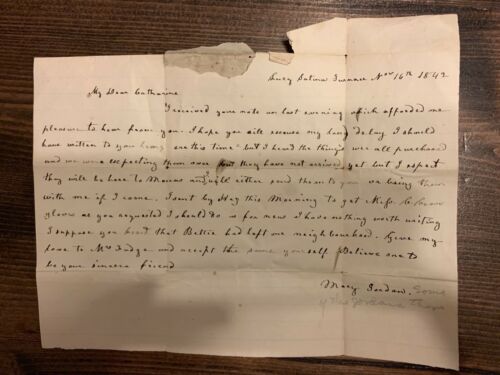 Nov 16th 1842
My Dear Catharine
I received your note on last evening which afforded me
pleasure to hear from you. I hope you will excuse my long delay I should
have written to you long ere this time but I heard the things were all purchased
and we were expecting them over but they have not arrived yet but I expect
they will be here to Morrow and will either send them to you or bring them
with me if I come. I sent by this Morning to get Miss
gloves as you requested I should so for news I have nothing worth writing
I suppose you heard that Bettie had left our neighbourhood. Give my
love to Mrs Judge and accept the same yourself Believe me to
be your sincere friend
Mary Jordan. Some
of the Jordans